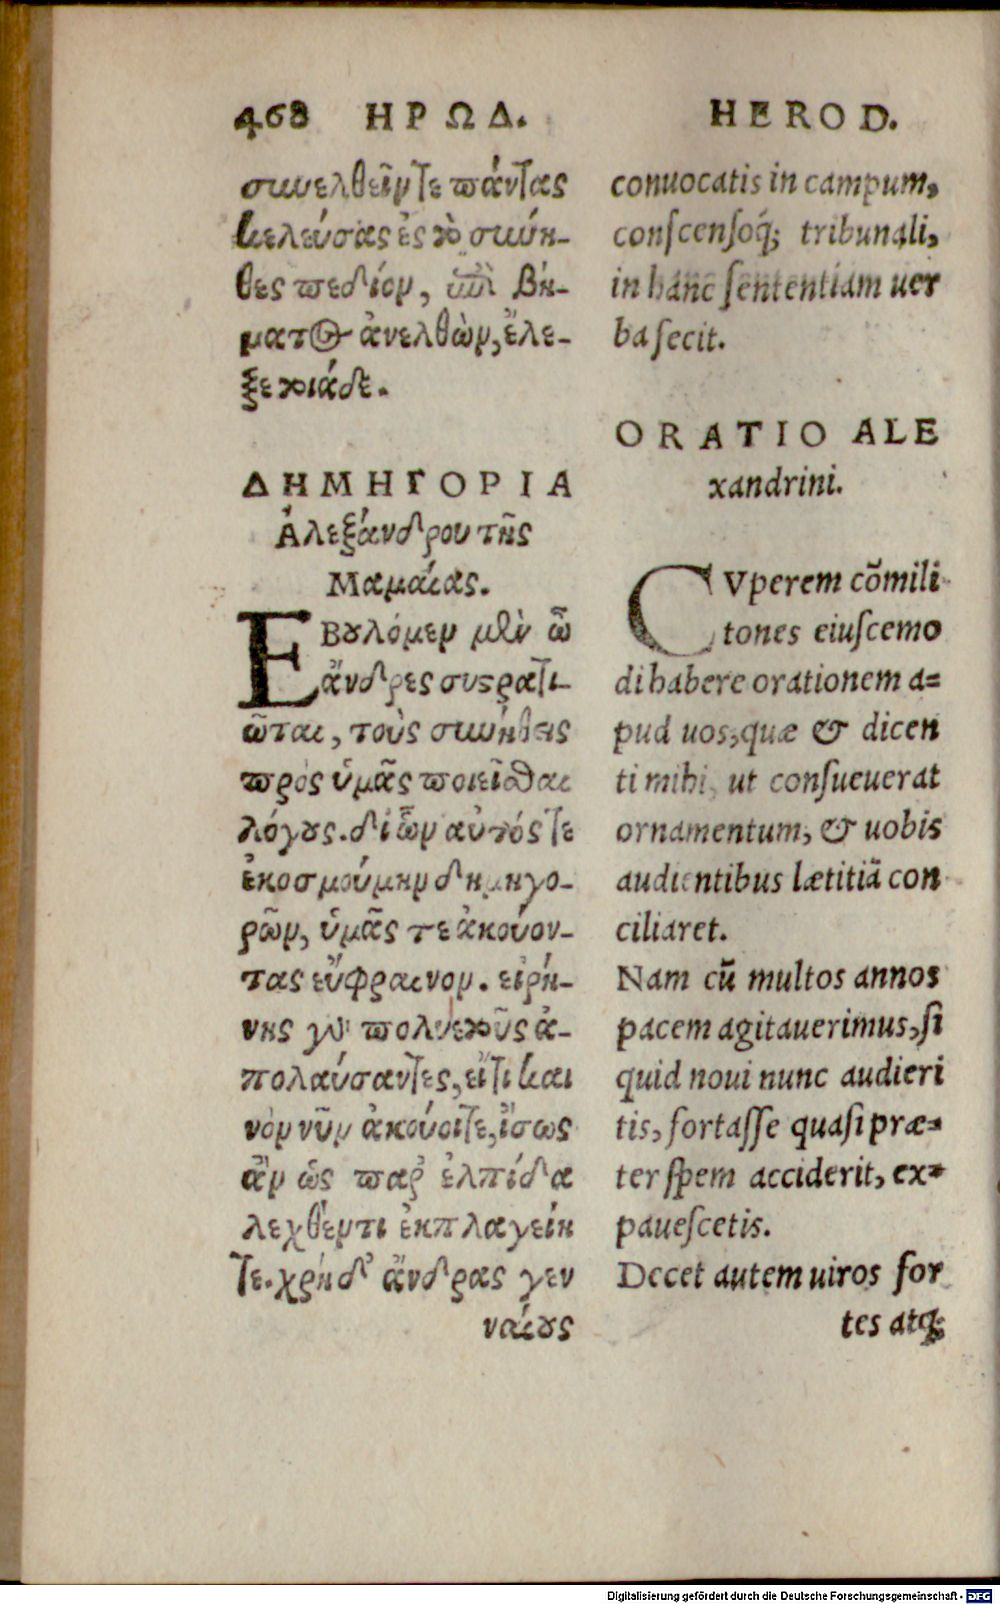 468 ΗΡΩΔ.
συνελθεῖν τε πάντας
κελεύσας ἐς τὸ σύνη-
θες πεδίον, ἐπὶ βή-
ματος ἀνελθὼν, ἔλε-
ξε τοιάδε.
ΔΗΜΗΓΟΡΙΑ
Ἀλεξάνδρου τῆς
Μαμαίας.
ΕΒουλόμην μὲν ὦ
ἄνδρες συστρατι-
ῶται, τοὺς συνήθεις
πρὸς ὑμᾶς ποιεῖσθαι
λόγους. δι ὧν αὐτός τε
ἐκοσμούμην δημηγο-
ρῶν, ὑμᾶς τε ἀκούον-
τας εὔφραινον. εἰρή-
νης γὰρ πολυετοῦς ἀ-
πολαύσαντες, εἴ τι και
νὸν νῦν ἀκούοιτε, ἴσως
ἂν ὡς παρ ἐλπίδα
λεχθέντι ἐκπλαγείη
τε. χρὴ δ' ἄνδρας γεν
ναίους
HEROD.
conuocatis in campum,
conſcenſoq́; tribunali,
in hanc ſententiam uer
ba fecit.
ORATIO ALE
xandrini.
CVperem cõmili
tones eiuſcemo
di habere orationem a=
pud uos, quæ & dicen
ti mihi, ut conſueuerat
ornamentum, & uobis
audientibus lætitiã con
ciliaret.
Nam cũ multos annos
pacem agitauerimus, ſi
quid noui nunc audieri
tis, fortaſſe quaſi præ=
ter ſpem acciderit, ex=
paueſcetis.
Decet autem uiros for
tes atq;
Digitalisierung gefördert durch die Deutsche Forschungsgemeinschaft - DFG